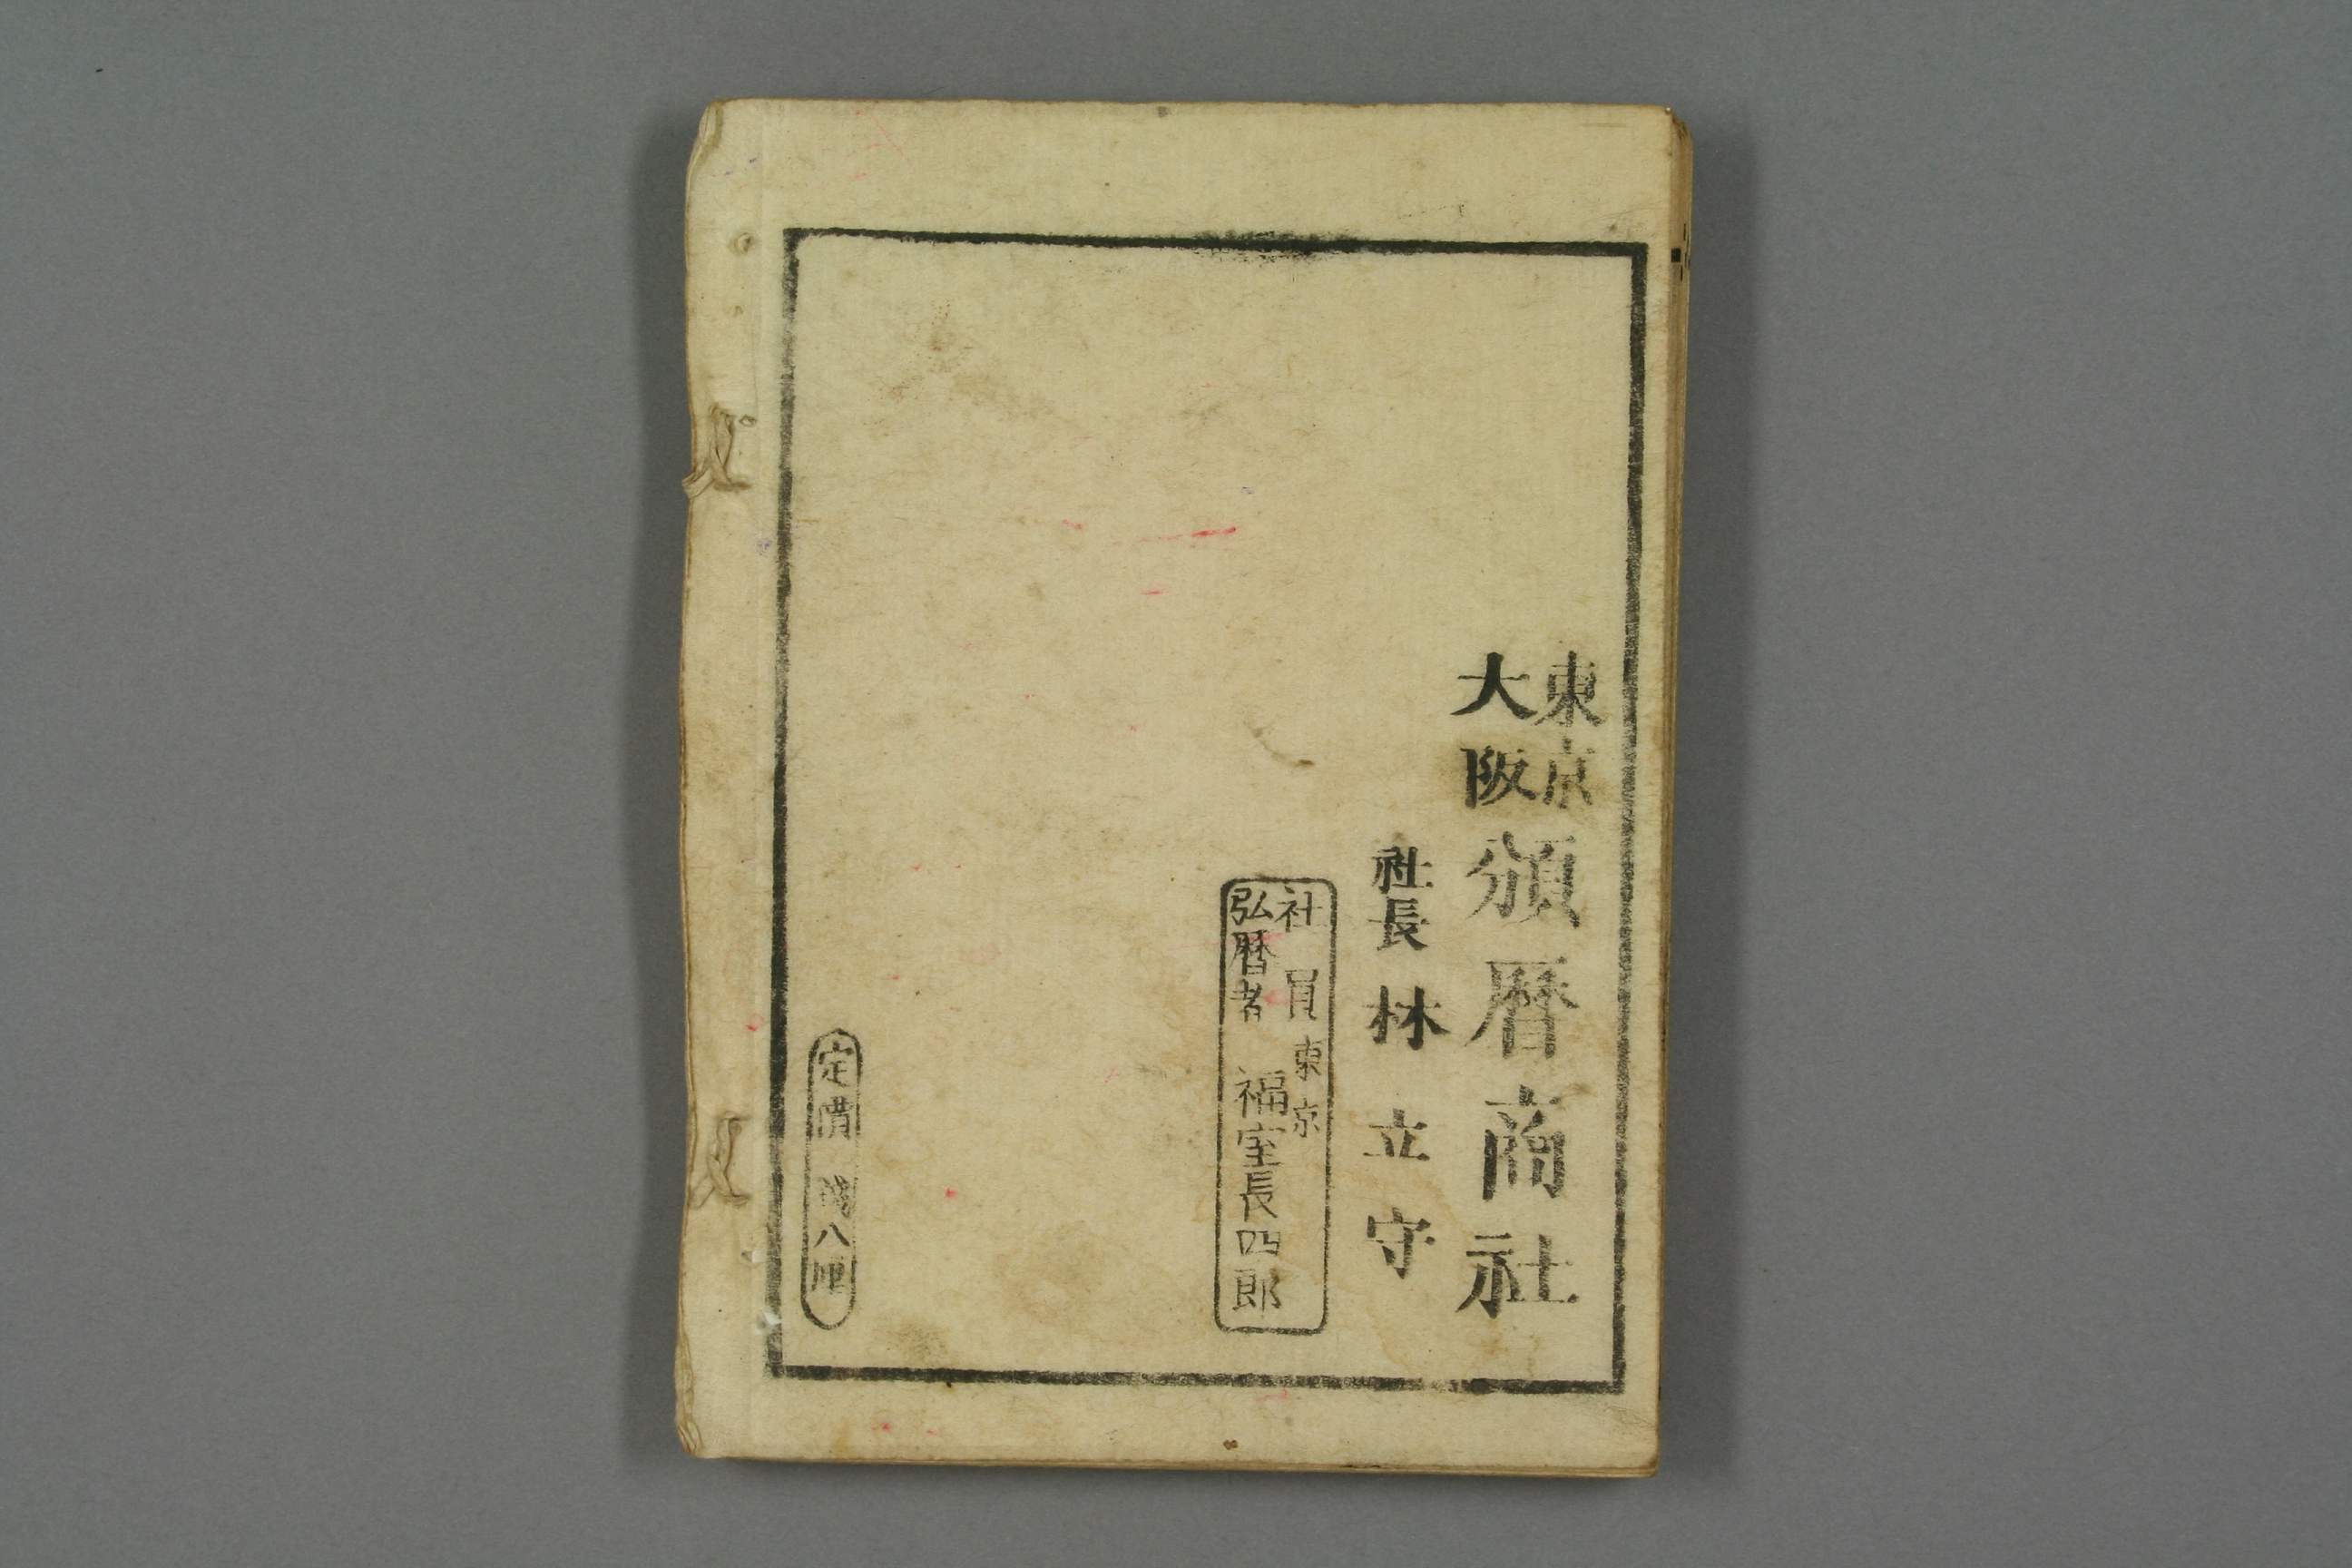 東京
大阪
頒暦商社
社長 林立守
社員 東京
弘暦者 福室長四郎
定價 錢八厘